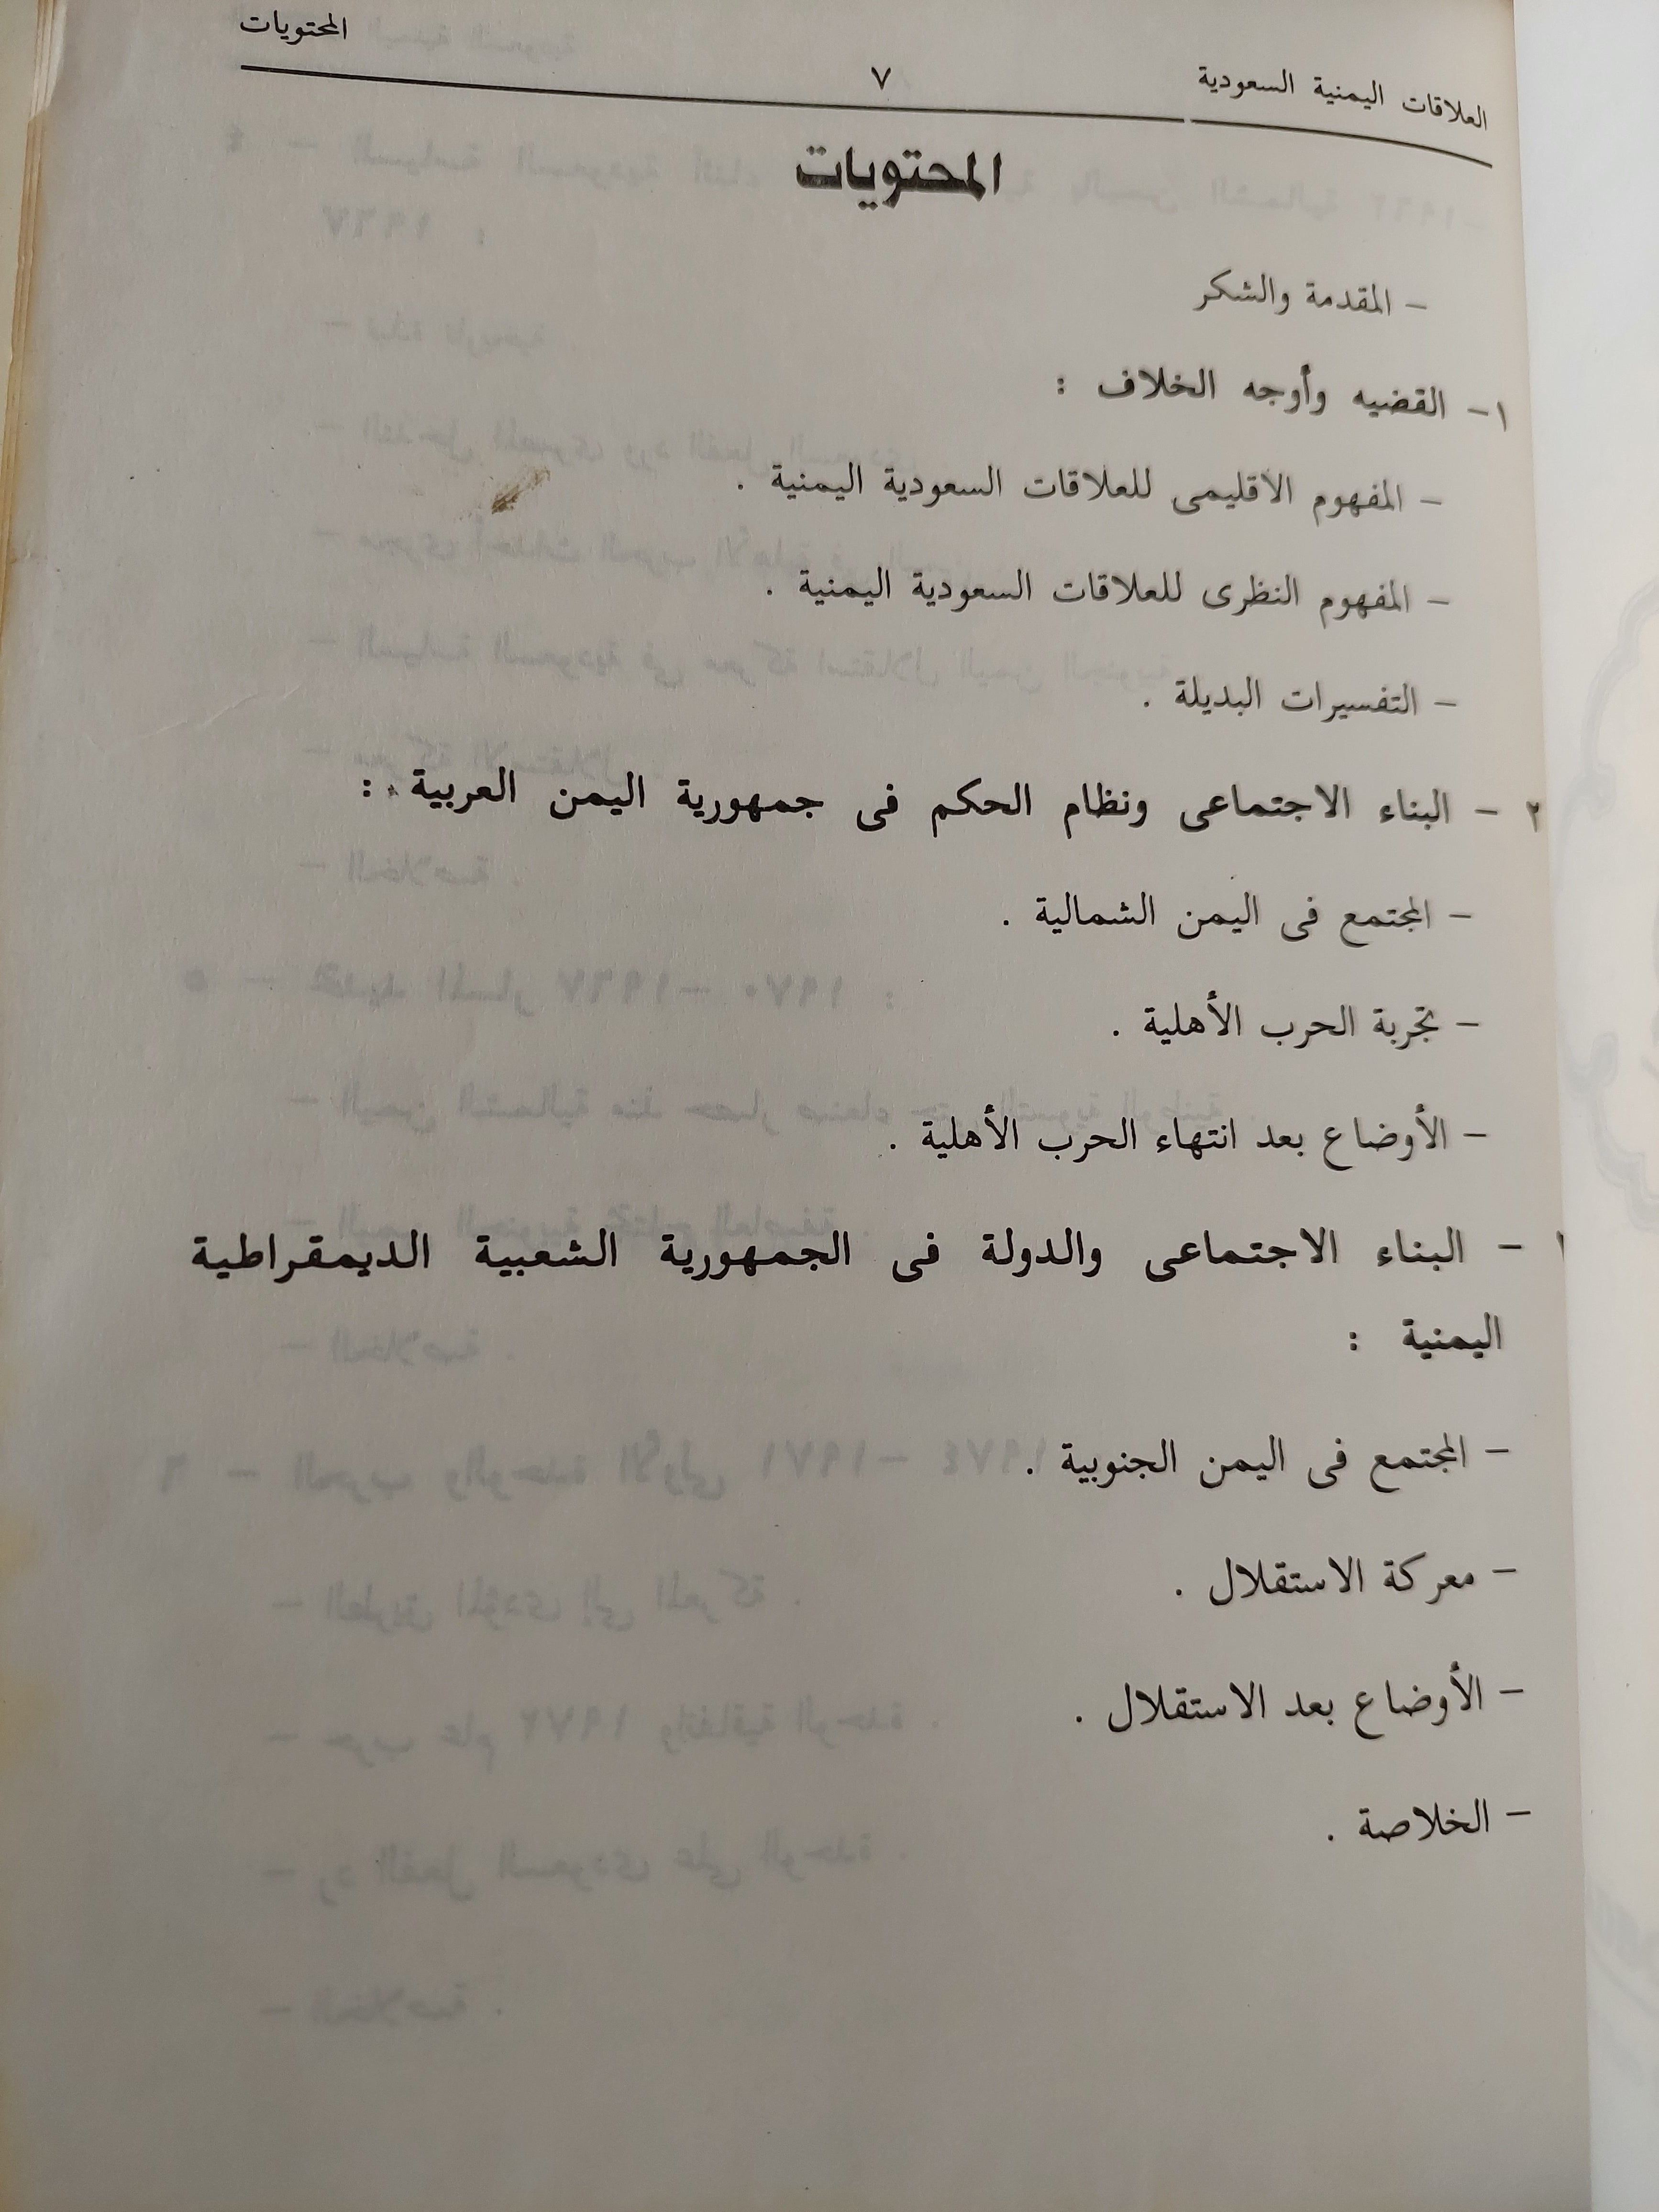 العلاقات اليمنية السعودية
٧
المحتويات
المحتويات
– المقدمة والشكر
١– القضيه وأوجه الخلاف :
– المفهوم الاقليمى للعلاقات السعودية اليمنية .
– المفهوم النظرى للعلاقات السعودية اليمنية .
– التفسيرات البديلة .
٢ – البناء الاجتماعى ونظام الحكم فى جمهورية اليمن العربية :
– المجتمع فى اليمن الشمالية .
– تجربة الحرب الأهلية .
– الأوضاع بعد انتهاء الحرب الأهلية .
– البناء الاجتماعى والدولة فى الجمهورية الشعبية الديمقراطية
اليمنية :
– المجتمع فى اليمن الجنوبية .
– معركة الاستقلال .
– الأوضاع بعد الاستقلال .
– الخلاصة .